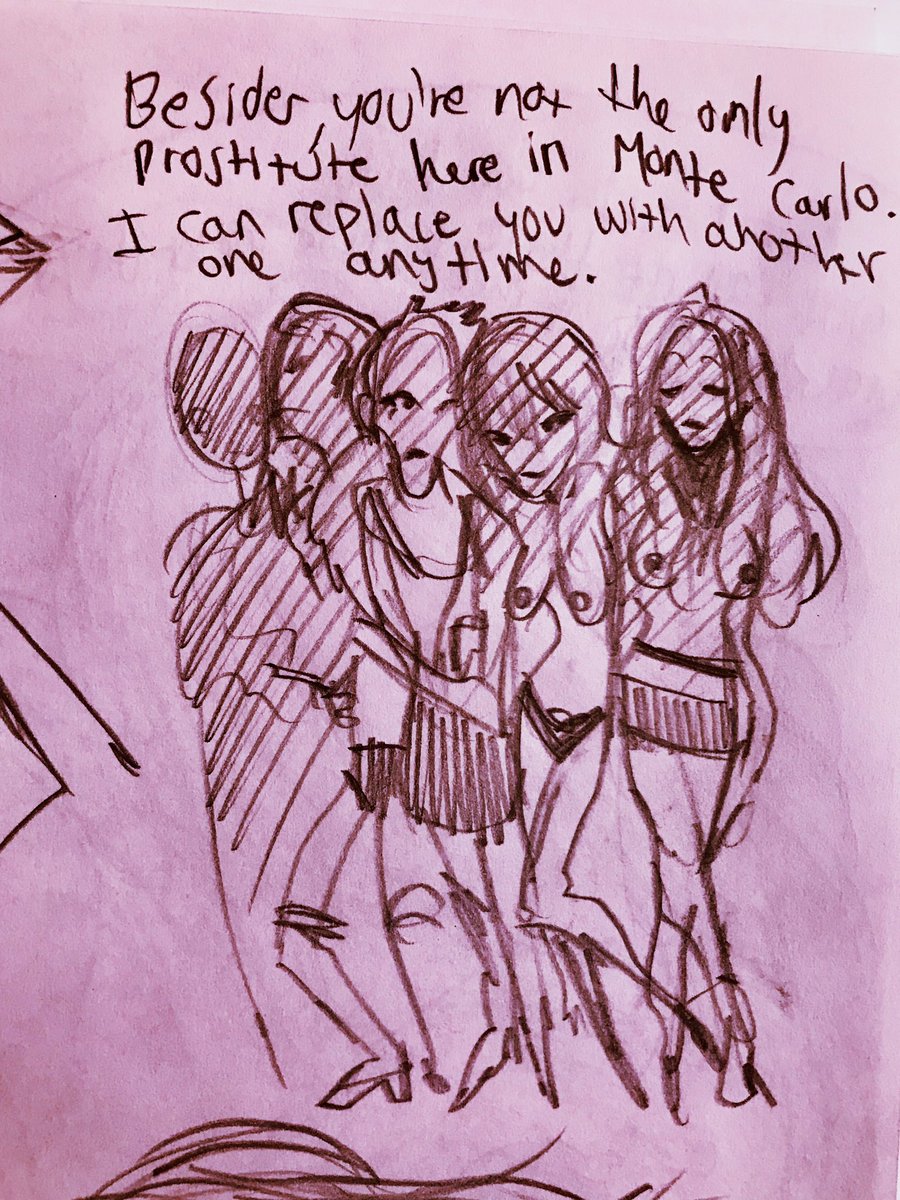 Besides, you're not the only
prostitute here in Monte Carlo.
I can replace you with another
one anytime.